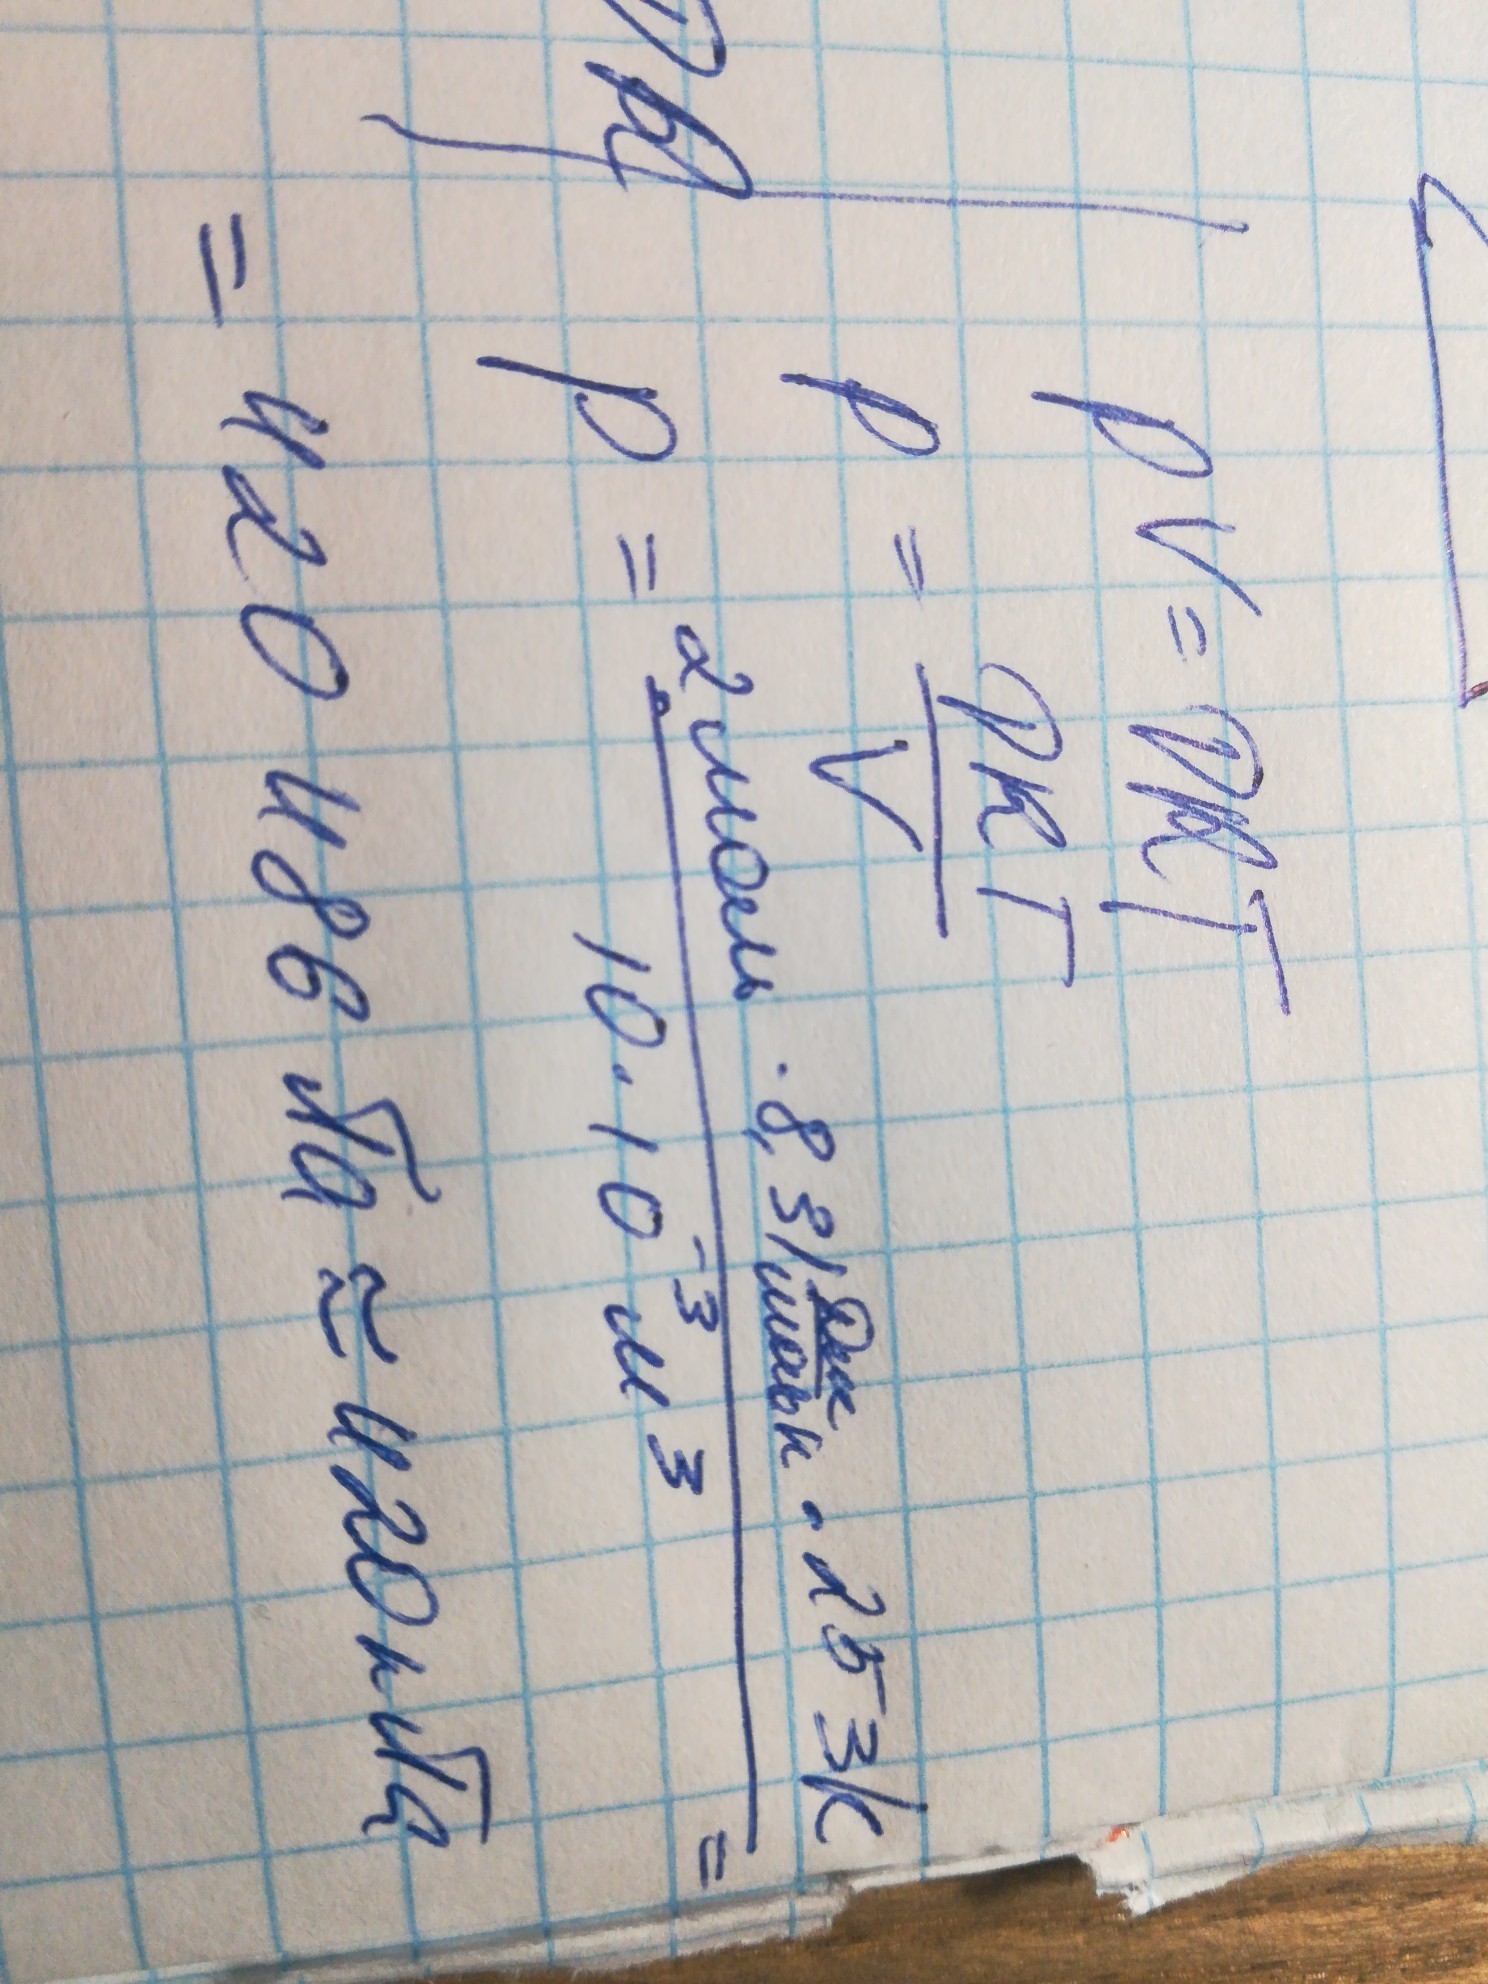 pV = νRT
p = νRT / V
p = 2 моль · 8,31 Дж/моль·К · 253К / 10 · 10⁻³ м³ =
= 420 486 Па ≈ 420 кПа